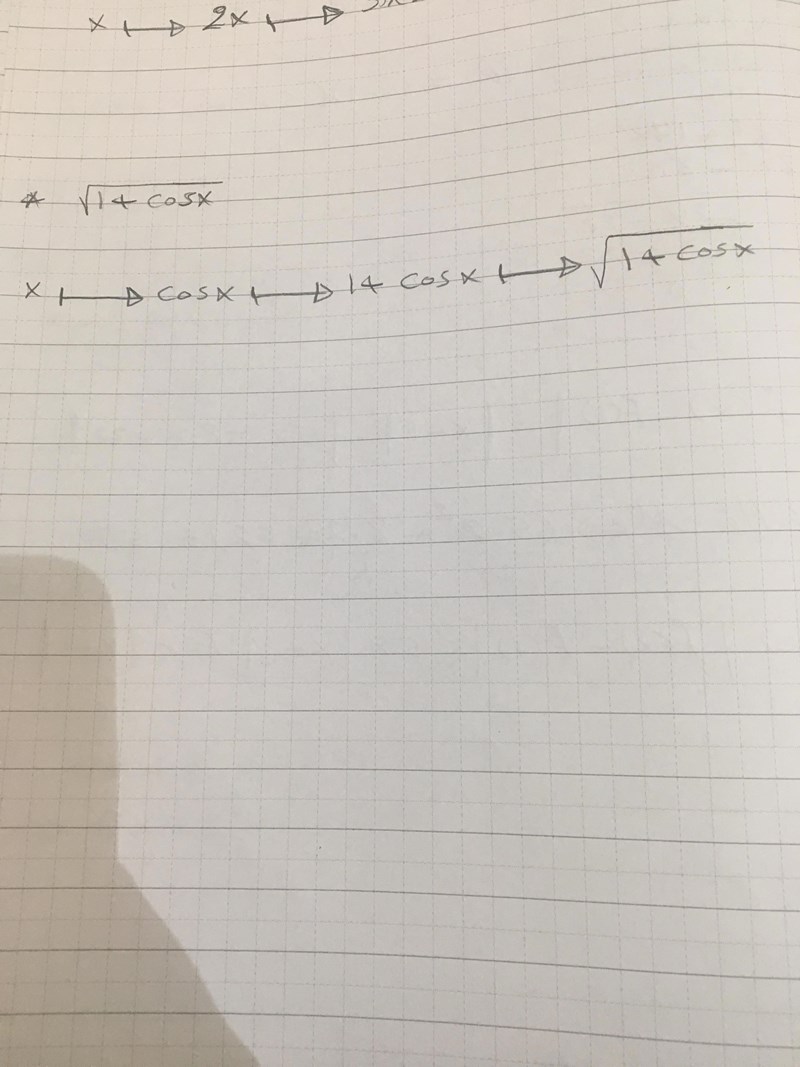 x ↦ 2x ↦
* √1+cosx
x ↦ cosx ↦ 1+cosx ↦ √1+cosx